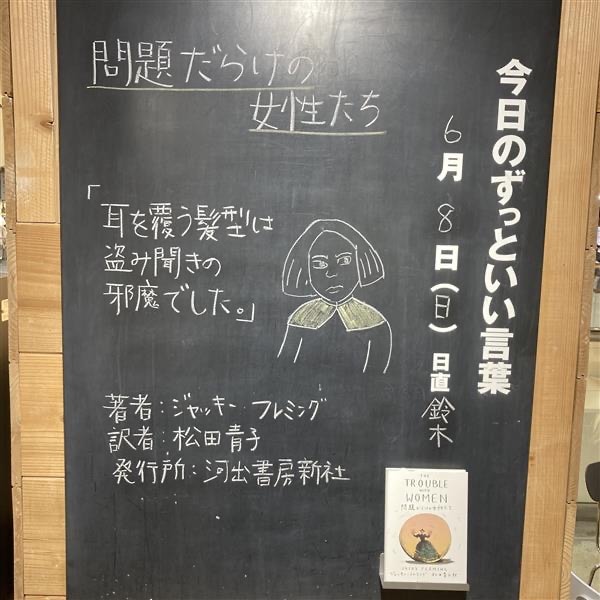 今日のずっといい言葉
6月8日(日) 日直 鈴木
問題だらけの
女性たち
「耳を覆う髪型は
盗み聞きの
邪魔でした。」
著者:ジャッキー フレミング
訳者:松田青子
発行所:河出書房新社
THE
TROUBLE
WITH
WOMEN
問題だらけの女性たち
JACKY FLEMING
ジャッキー・フレミング 松田青子 訳